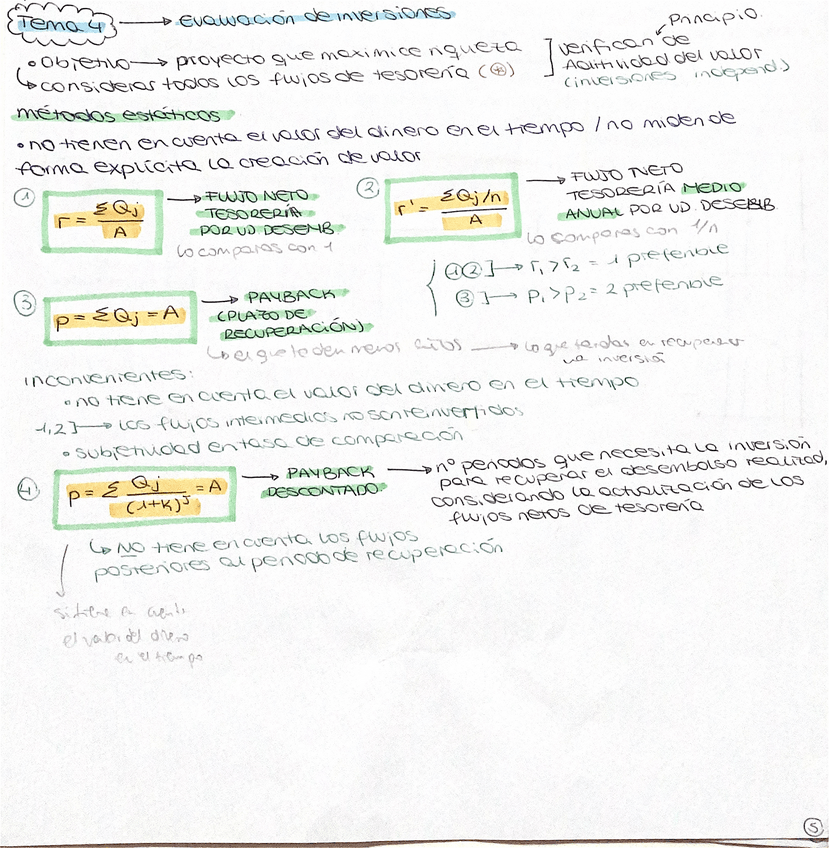 Tema 4 → evaluación de inversiones
Principio
• objetivo → proyecto que maximice riqueza
↳ considerar todos los flujos de tesorería (*)
] verifican de
Aditividad del valor
(inversiones independ.)
métodos estáticos
• no tienen en cuenta el valor del dinero en el tiempo / no miden de
forma explícita la creación de valor
① r = ΣQj / A
→ FLUJO NETO
TESORERÍA
POR UD DESEMB.
lo comparas con 1
② r' = ΣQj/n / A
→ FLUJO NETO
TESORERÍA MEDIO
ANUAL POR UD. DESEMB.
lo comparas con 1/n
①②] → r₁ > r₂ = 1 preferible
③] → p₁ > p₂ = 2 preferible
③ p = ΣQj = A
→ PAYBACK
(PLAZO DE
RECUPERACIÓN)
↳ el que te den menos años → lo que tardas en recuperar
la inversión
inconvenientes:
• no tiene en cuenta el valor del dinero en el tiempo
1,2] → los flujos intermedios no son reinvertidos
• subjetividad en tasa de comparación
④ p = Σ Qj / (1+K)^j = A
→ PAYBACK
DESCONTADO
→ nº periodos que necesita la inversión
para recuperar el desembolso realizad,
considerando la actualización de los
flujos netos de tesorería
↳ NO tiene en cuenta los flujos
posteriores al periodo de recuperación
si tiene en cuenta
el valor del dinero
en el tiempo
5